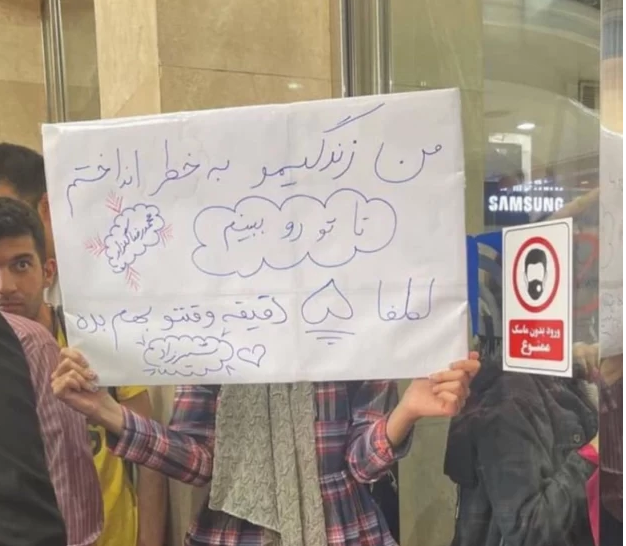 من زندگیمو به خطر انداختم
تا تو رو ببینم
محمدرضا گلزار
لطفا ۵ دقیقه وقتتو بهم بده
شیرزاد
SAMSUNG
ورود بدون ماسک
ممنوع